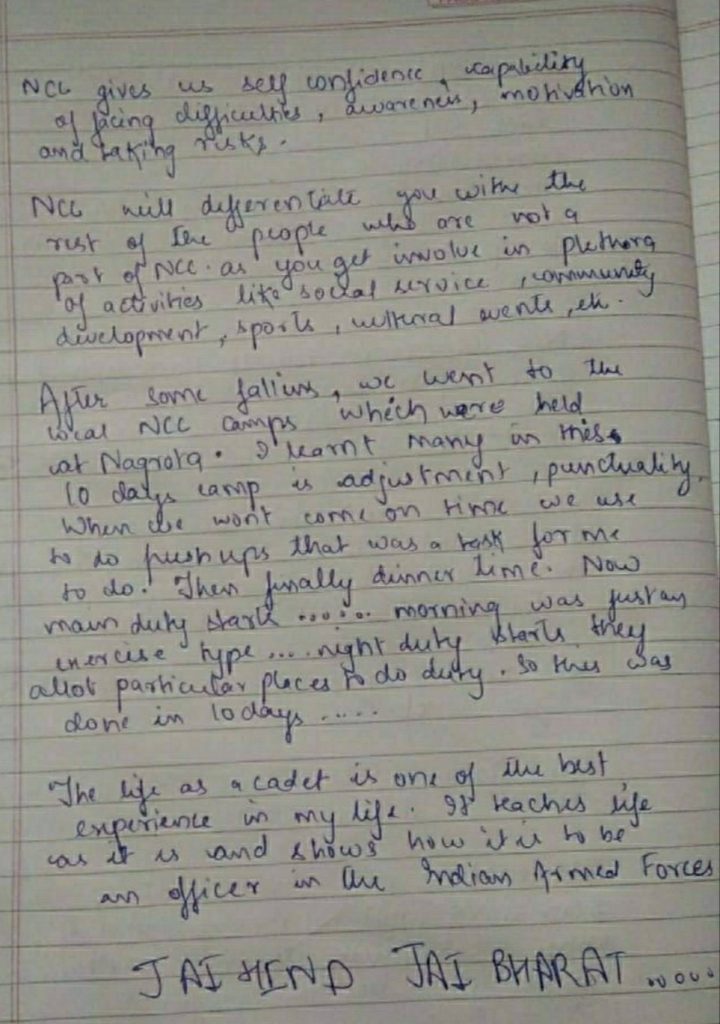 NCC gives us self confidence, capability
of facing difficulties, awareness, motivation
and taking risks.
NCC will differentiate you withe the
rest of the people who are not a
part of NCC. as you get involve in plethora
of activities like social service, community
development, sports, cultural events, etc.
After some , we went to the
local NCC camps which were held
at Nagrota. I learnt many in this
10 days camp is adjustment, punctuality.
When we wont come on time we use
to do push ups that was a task for me
to do. Then finally dinner time. Now
main duty starts ...... morning was just an
exercise type .... night duty starts they
allot particular places to do duty. So this was
done in 10 days .....
The life as a cadet is one of the best
experience in my life. It teaches life
as it is and shows how it is to be
an officer in the Indian Armed Forces
JAI HIND JAI BHARAT .....